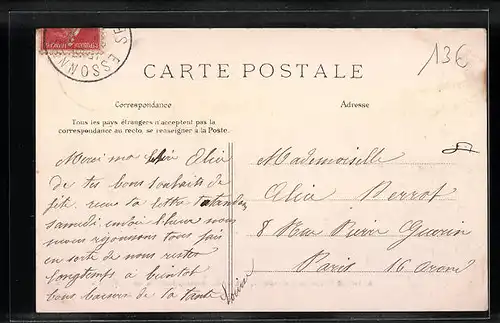 ESSONNES
136
CARTE POSTALE
Correspondance
Adresse
Tous les pays étrangers n'acceptent pas la
correspondance au recto, se renseigner à la Poste.
Merci ma chère Alia
de tes bons souhaits de
fête, reçu ta lettre
samedi,
nous rejouissons tous fais
en sorte de nous rester
longtemps à bientôt
bons baisers de ta tante
Louise
Mademoiselle
Alia Perrot
8 Rue Pierre Guerin
Paris 16 arond